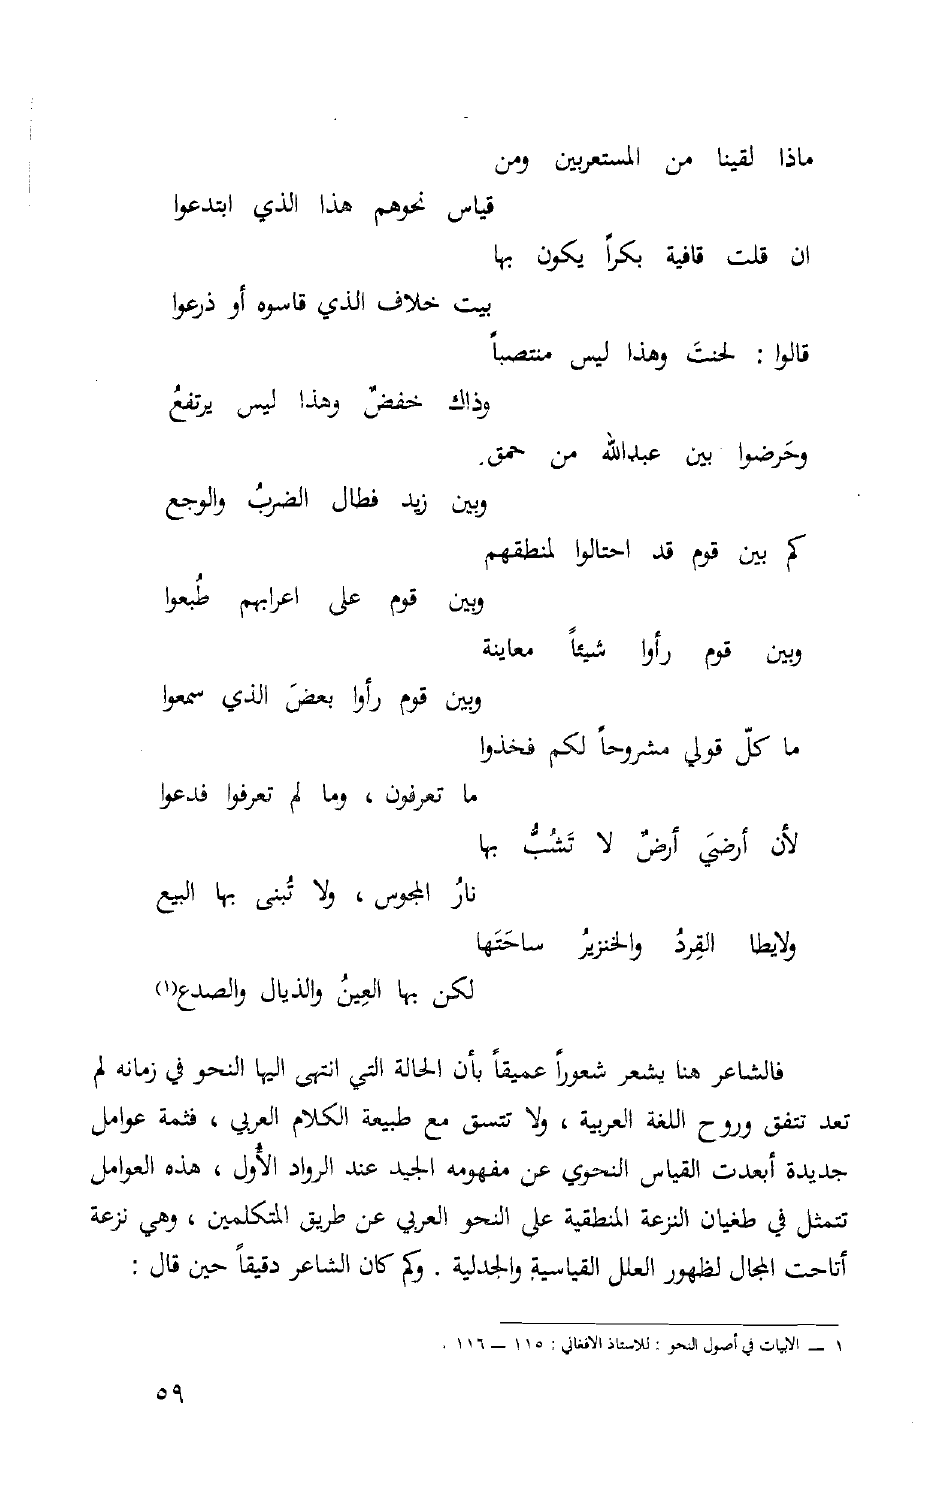 ماذا لقينا من المستعربين ومن
قياس نحوهم هذا الذي ابتدعوا
ان قلت قافية بكراً يكون بها
بيت خلاف الذي قاسوه أو ذرعوا
قالوا : لحنتَ وهذا ليس منتصباً
وذاك خفضٌ وهذا ليس يرتفعُ
وحَرضوا بين عبدالله من حمق.
وبين زيد فطال الضربُ والوجع
كم بين قوم قد احتالوا لمنطقهم
وبين قوم على اعرابهم طُبعوا
وبين قوم رأوا شيئاً معاينة
وبين قوم رأوا بعضَ الذي سمعوا
ما كلّ قولي مشروحاً لكم فخذوا
ما تعرفون ، وما لم تعرفوا فدعوا
لأن أرضيَ أرضٌ لا تَشُبُّ بها
نارُ المجوس ، ولا تُبنى بها البيع
ولايطا القِردُ والخنزيرُ ساحَتَها
لكن بها العِينُ والذيال والصدع(١)
فالشاعر هنا يشعر شعوراً عميقاً بأن الحالة التي انتهى اليها النحو في زمانه لم
تعد تتفق وروح اللغة العربية ، ولا تتسق مع طبيعة الكلام العربي ، فثمة عوامل
جديدة أبعدت القياس النحوي عن مفهومه الجيد عند الرواد الأُول ، هذه العوامل
تتمثل في طغيان النزعة المنطقية على النحو العربي عن طريق المتكلمين ، وهي نزعة
أتاحت المجال لظهور العلل القياسية والجدلية . وكم كان الشاعر دقيقاً حين قال :
١ ــ الابيات في أصول النحو : للاستاذ الافغاني : ١١٥ ــ ١١٦ .
٥٩